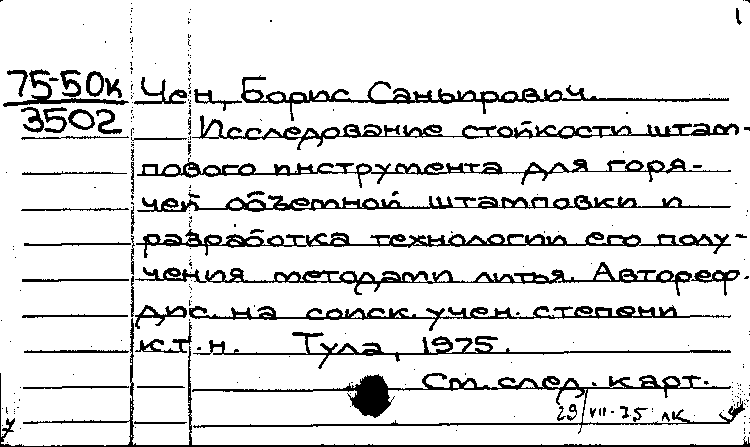 1
75-50к
3502
Чен, Борис Саньирович.
Исследование стойкости штам-
пового инструмента для горя-
чей объемной штамповки и
разработка технологии его полу-
чения методами литья. Автореф.
дис. на соиск. учен. степени
к.т.н. Тула, 1975.
См. след. карт.
29/VII-75 лк